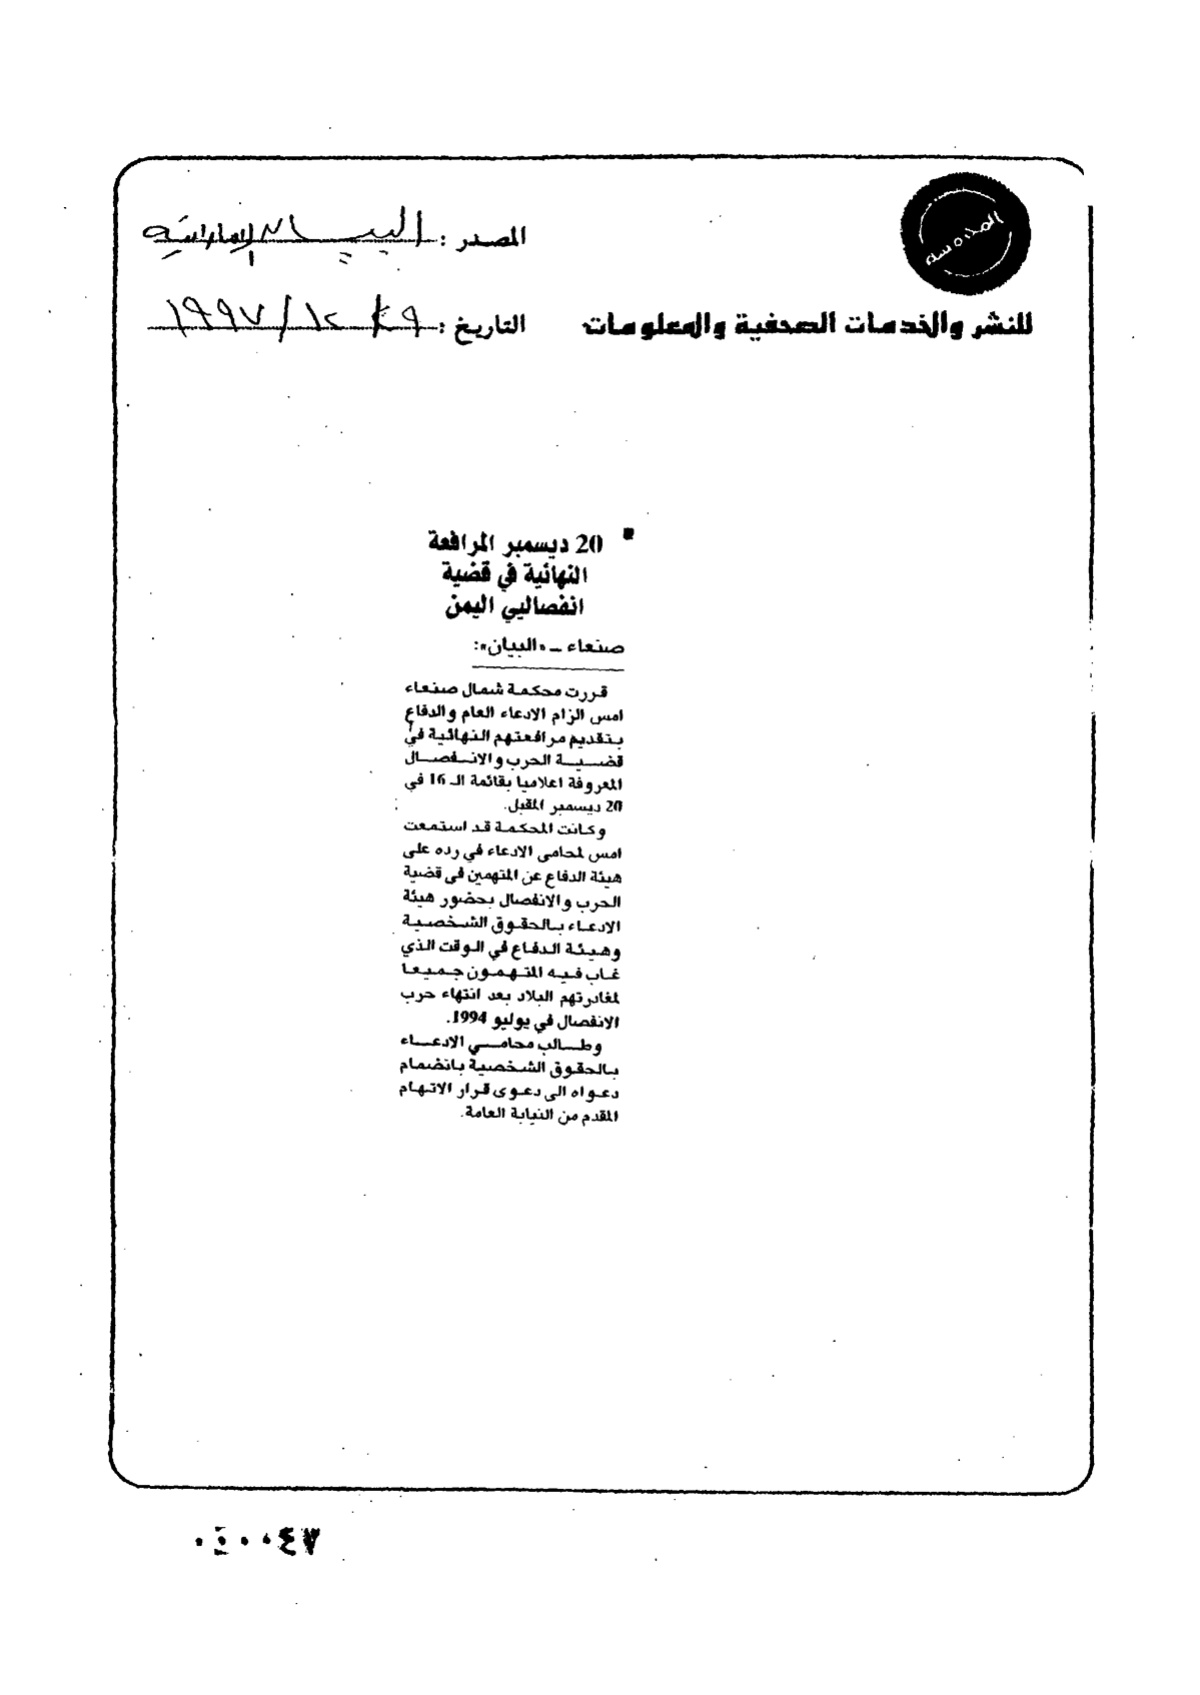 المصدر : البيان الإماراتية
للنشر والخدمات الصحفية والمعلومات
التاريخ : ١٩٩٧/١٢
20 ديسمبر المرافعة
النهائية في قضية
انفصاليي اليمن
صنعاء ــ «البيان»:
قررت محكمة شمال صنعاء
امس الزام الادعاء العام والدفاع
بتقديم مرافعتهم النهائية في
قضية الحرب والانفصال
المعروفة اعلاميا بقائمة الـ 16 في
20 ديسمبر المقبل.
وكانت المحكمة قد استمعت
امس لمحامى الادعاء في رده على
هيئة الدفاع عن المتهمين فى قضية
الحرب والانفصال بحضور هيئة
الادعاء بالحقوق الشخصية
وهيئة الدفاع في الوقت الذي
غاب فيه المتهمون جميعا
لمغادرتهم البلاد بعد انتهاء حرب
الانفصال في يوليو 1994.
وطالب محامي الادعاء
بالحقوق الشخصية بانضمام
دعواه الى دعوى قرار الاتهام
المقدم من النيابة العامة.